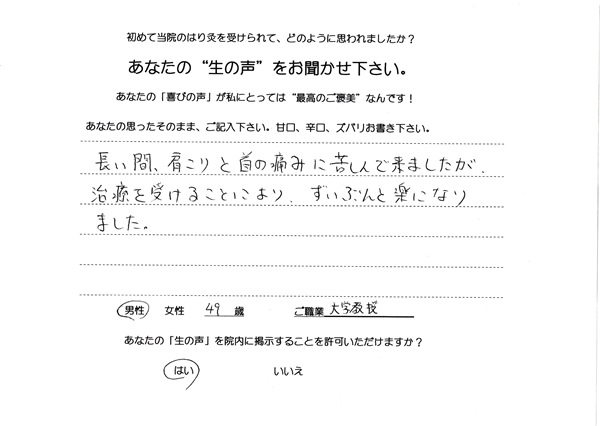 初めて当院のはり灸を受けられて、どのように思われましたか？
あなたの“生の声”をお聞かせ下さい。
あなたの「喜びの声」が私にとっては“最高のご褒美”なんです！
あなたの思ったそのまま、ご記入下さい。甘口、辛口、ズバリお書き下さい。
長い間、肩こりと首の痛みに苦しんで来ましたが、
治療を受けることにより、ずいぶんと楽になり
ました。
男性 女性 49 歳 ご職業 大学教授
あなたの「生の声」を院内に掲示することを許可いただけますか？
はい いいえ